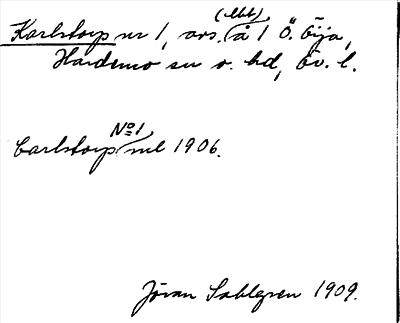 Karlstorp nr 1, avs. (Mbt) å 1 Ö. Öja,
Hardemo sn o. hd, Öv. l.
Carlstorp No 1 ml 1906.
Jöran Sahlgren 1909.